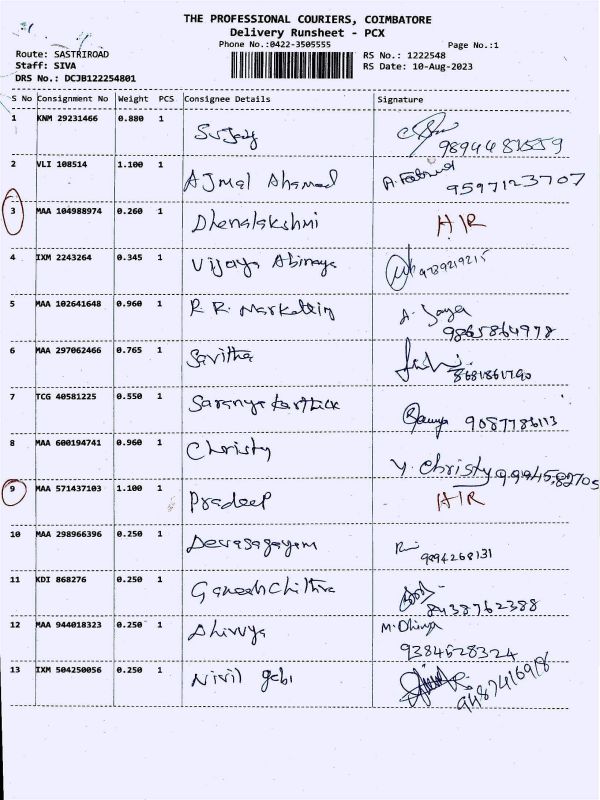 THE PROFESSIONAL COURIERS, COIMBATORE
Delivery Runsheet - PCX
Phone No.:0422-3505555 Page No.:1
Route: SASTRIROAD RS No.: 1222548
Staff: SIVA RS Date: 10-Aug-2023
DRS No.: DCJB122254801
S No Consignment No Weight PCS Consignee Details Signature
1 KNM 29231466 0.880 1
Sujay 9894481559
2 VLI 108514 1.100 1
AJmal Ahamad 9597123707
3 MAA 104988974 0.260 1
Dhenalakshmi H/R
4 IXM 2243264 0.345 1
Vijaya Abinaya 9789219215
5 MAA 102641648 0.960 1
R.R. Marketting A. Jaya
9865864978
6 MAA 297062466 0.765 1
Savitha
8681861790
7 TCG 40581225 0.550 1
Saranya karthick 9087786113
8 MAA 600194741 0.960 1
Christy Y. Christy 9994582705
9 MAA 571437103 1.100 1
Pradeep H/R
10 MAA 298966396 0.250 1
Devasagayam
9894268131
11 KDI 868276 0.250 1
Ganesh Chithra
8438762388
12 MAA 944018323 0.250 1 M. Dhivya
Dhivya 9384628324
13 IXM 504250056 0.250 1
Nivil gebi 9487416918